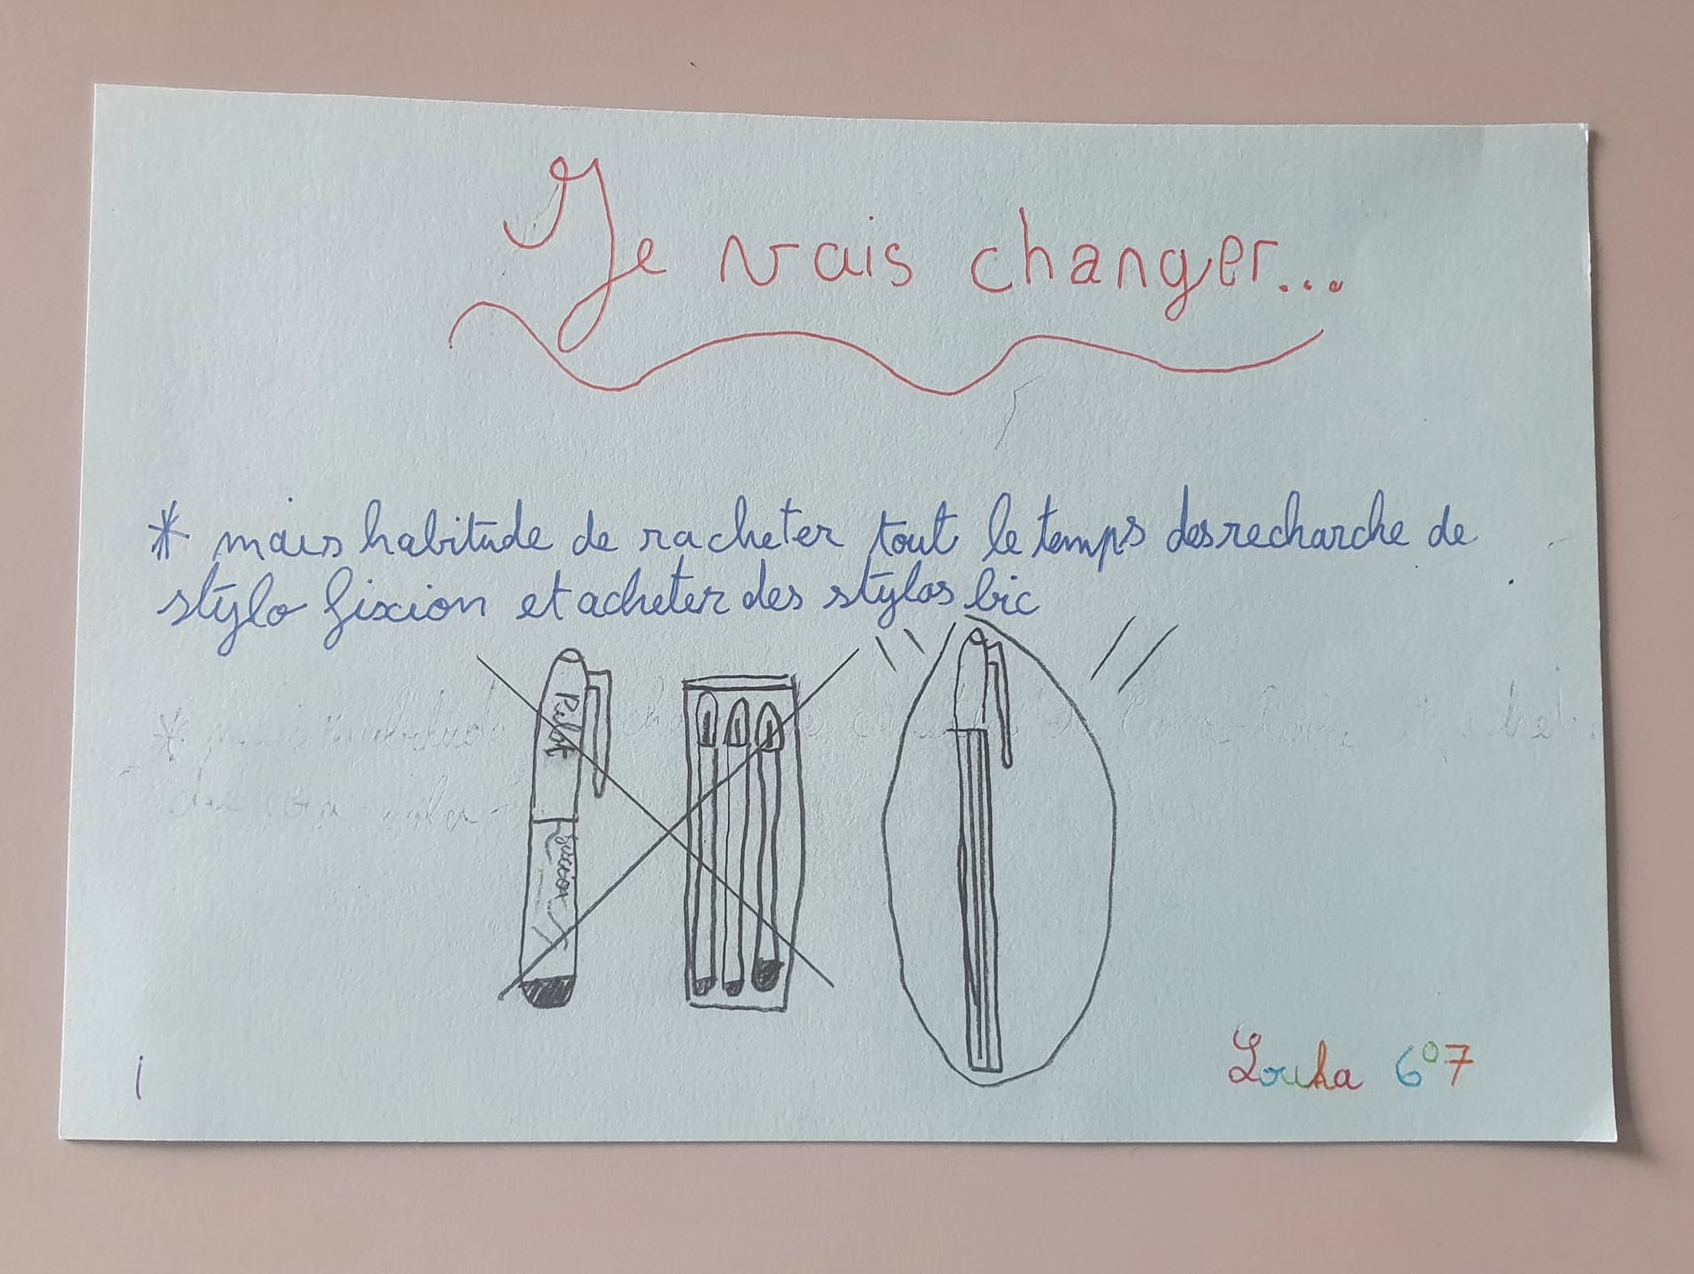 Je vais changer...
* mais habitude de racheter tout le temps des recharche de
stylo fixion et acheter des stylos bic
Pilot
fixion
Louha 6°7